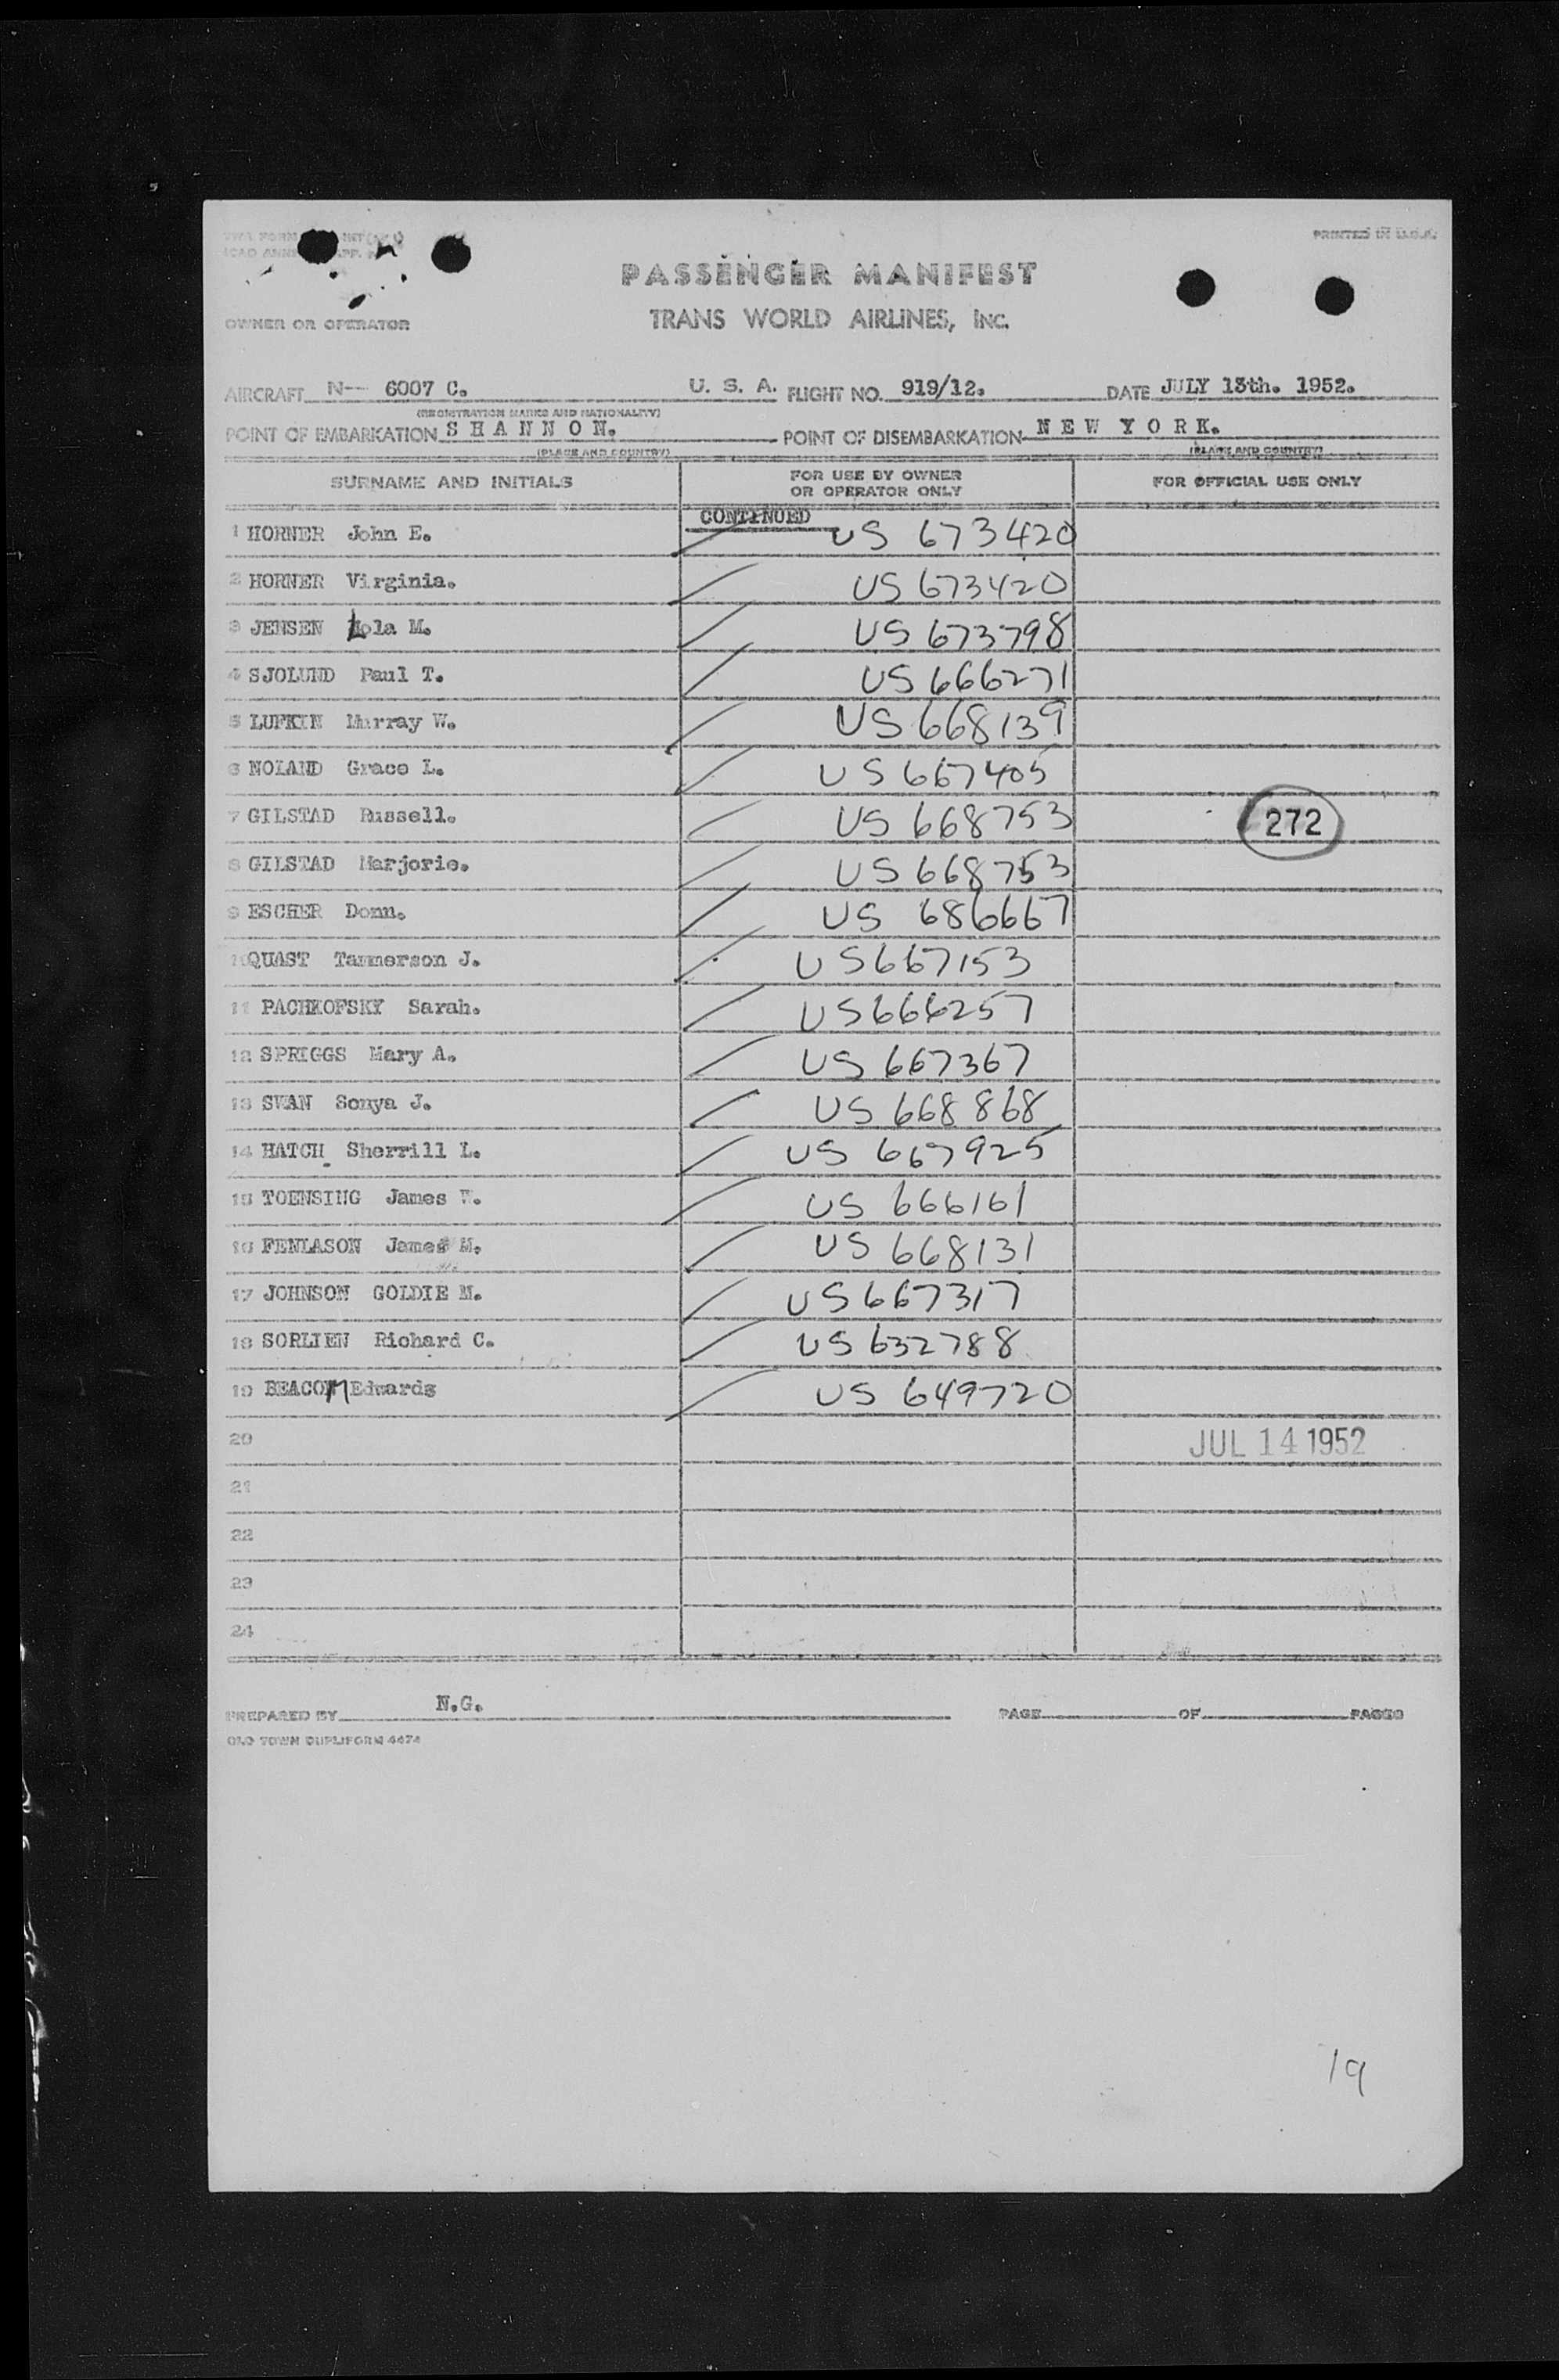 PRINTED IN U.S.A.
PASSENGER MANIFEST
TRANS WORLD AIRLINES, INC.
OWNER OR OPERATOR
AIRCRAFT N-- 6007 C. U. S. A. FLIGHT NO. 919/12. DATE JULY 13th. 1952.
(REGISTRATION MARKS AND NATIONALITY)
POINT OF EMBARKATION S H A N N O N. POINT OF DISEMBARKATION N E W Y O R K.
(PLACE AND COUNTRY) (PLACE AND COUNTRY)
SURNAME AND INITIALS FOR USE BY OWNER OR OPERATOR ONLY FOR OFFICIAL USE ONLY
CONTINUED
1 HORNER John E. US 673420
2 HORNER Virginia. US 673420
3 JENSEN Lola M. US 673798
4 SJOLUND Paul T. US 666271
5 LUFKIN Murray W. US 668139
6 NOLAND Grace L. US 667405
7 GILSTAD Russell. US 668753 272
8 GILSTAD Marjorie. US 668753
9 ESCHER Donn. US 686667
10 QUAST Tammerson J. US 667153
11 PACHKOFSKY Sarah. US 666257
12 SPRIGGS Mary A. US 667367
13 SWAN Sonya J. US 668868
14 HATCH Sherrill L. US 667925
15 TOENSING James W. US 666161
16 FENLASON James M. US 668131
17 JOHNSON GOLDIE M. US 667317
18 SORLIEN Richard C. US 632788
19 BEACOM Edwards US 649720
20 JUL 14 1952
21
22
23
24
PREPARED BY N.G. PAGE OF PAGES
OLD TOWN DUPLIFORM 4474
19